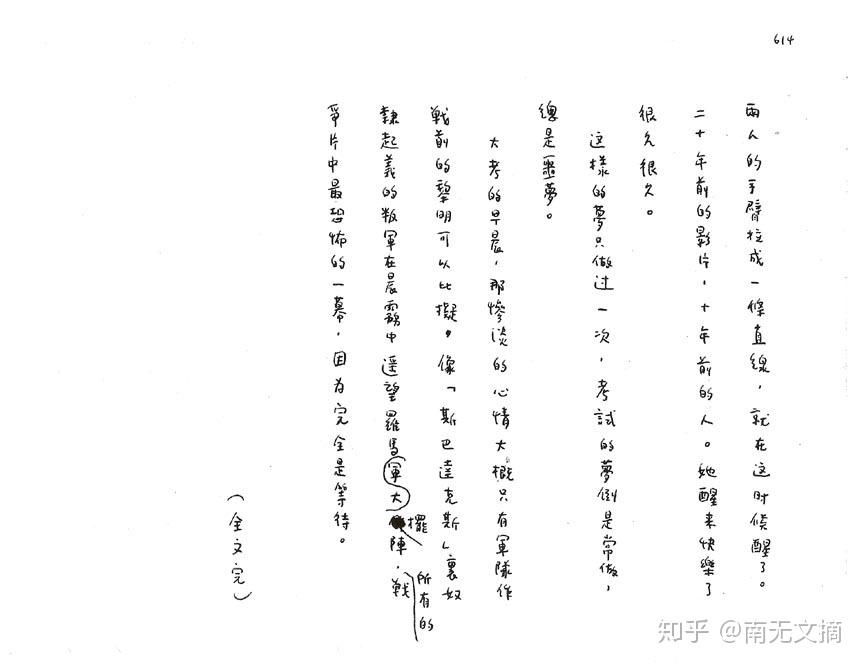 614
兩人的手臂拉成一條直線，就在这时候醒了。
二十年前的影片，十年前的人。她醒来快樂了
很久很久。
这樣的夢只做过一次，考試的夢倒是常做，
總是噩夢。
大考的早晨，那慘淡的心情大概只有軍隊作
戰前的黎明可以比擬，像「斯巴達克斯」裏奴
隸起義的叛軍在晨霧中遥望羅馬軍大擺陣，所有的戰
爭片中最恐怖的一幕，因为完全是等待。
（全文完）
知乎 @南无文摘